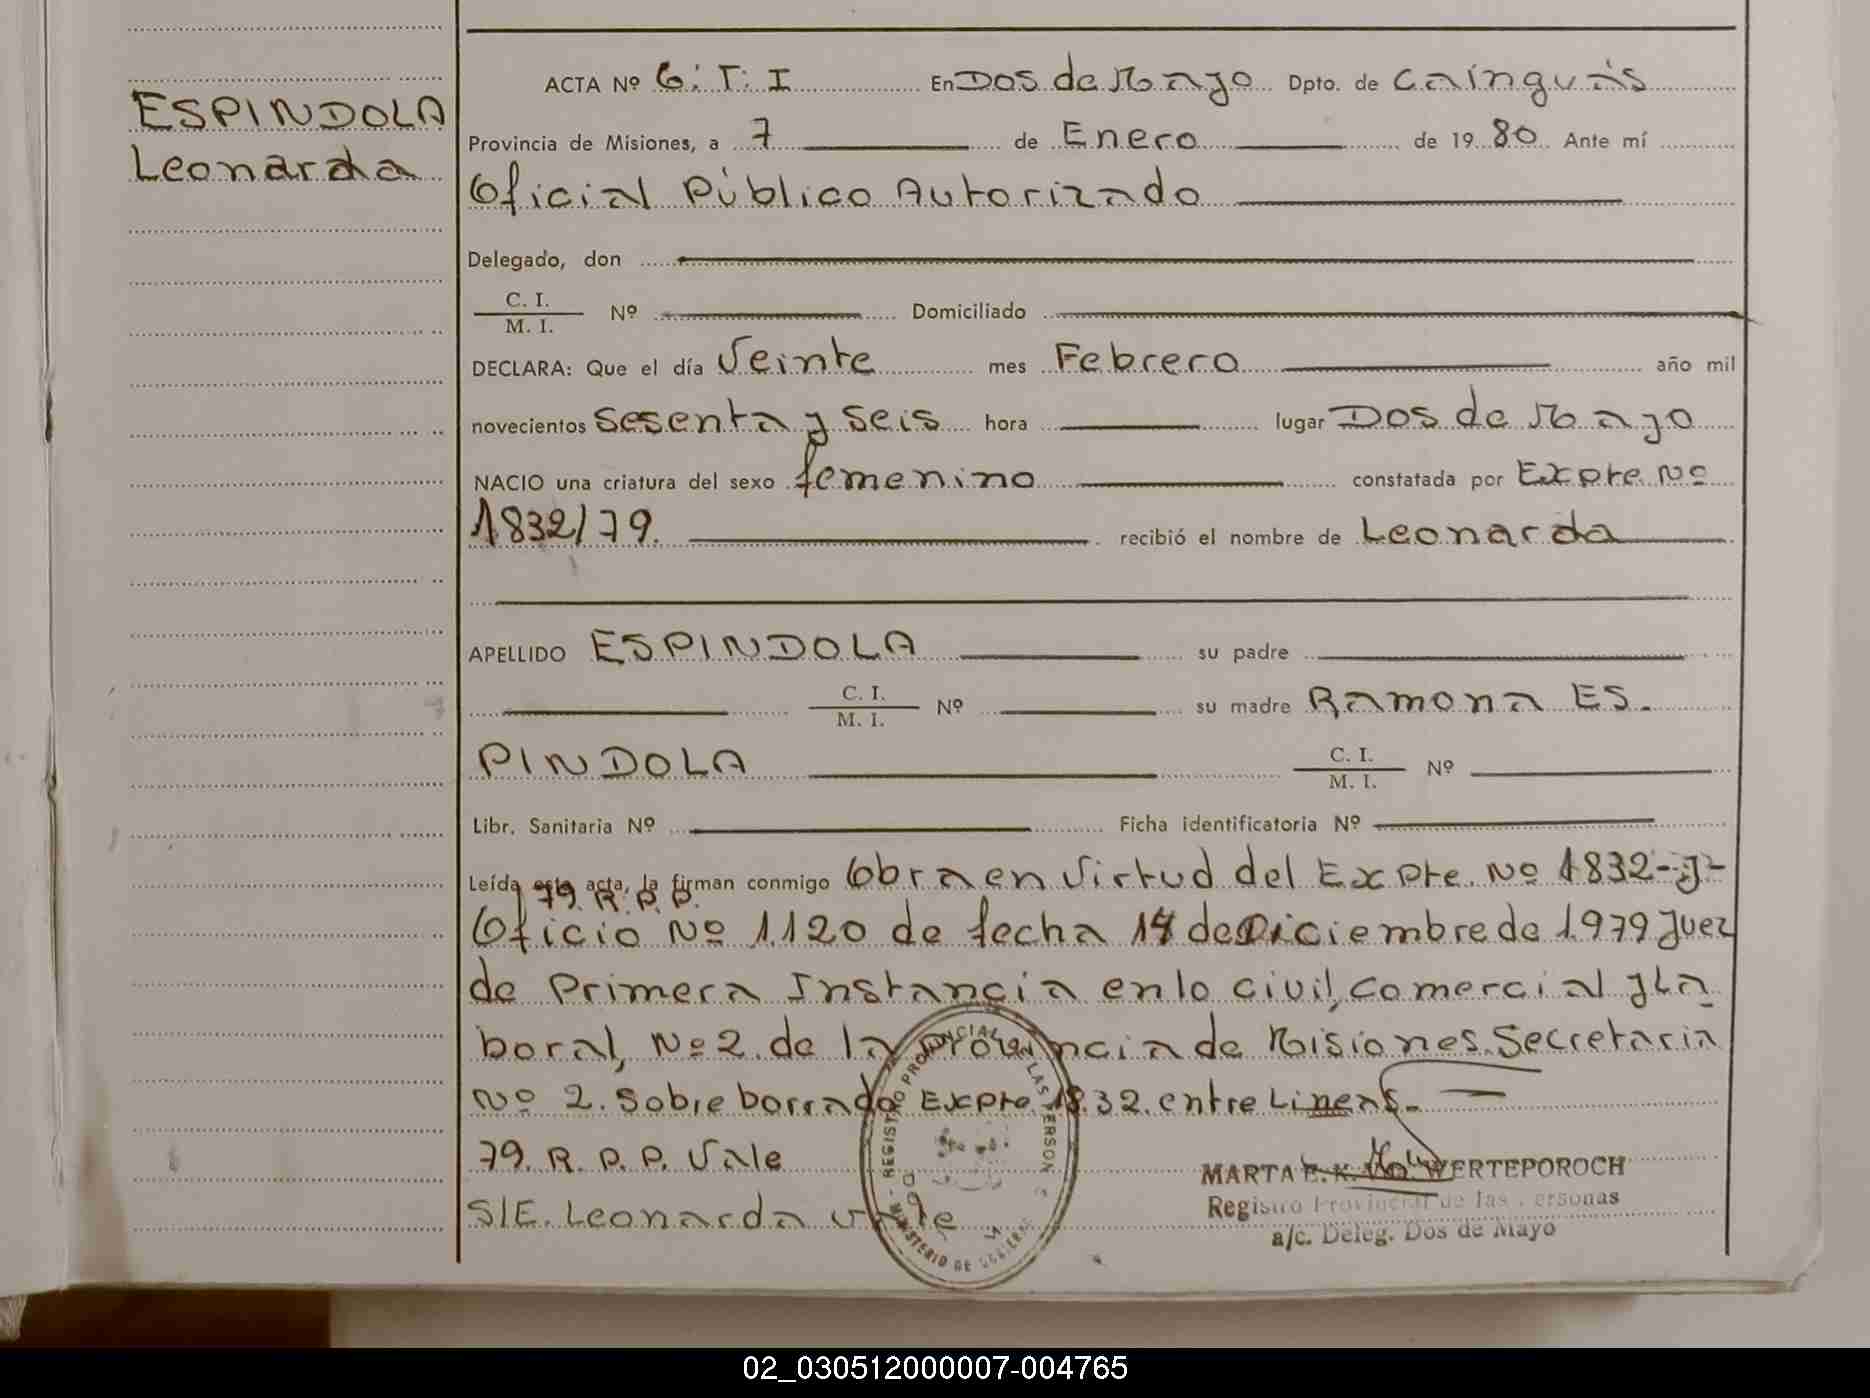 ESPINDOLA
Leonarda
ACTA Nº 6: T: I En Dos de Mayo Dpto. de Cainguás
Provincia de Misiones, a 7 de Enero de 1980 Ante mí
Oficial Público Autorizado
Delegado, don
C. I.
M. I. Nº Domiciliado
DECLARA: Que el día Veinte mes Febrero año mil
novecientos sesenta y seis hora lugar Dos de Mayo
NACIO una criatura del sexo femenino constatada por Expte. Nº
1832/79. recibió el nombre de Leonarda
APELLIDO ESPINDOLA su padre
C. I.
M. I. Nº su madre Ramona ES-
PINDOLA C. I.
M. I. Nº
Libr. Sanitaria Nº Ficha identificatoria Nº
Leída esta acta, la firman conmigo Obra en Virtud del Expte. Nº 1832-J-
79. R. P. P.
Oficio Nº 1.120 de fecha 14 de Diciembre de 1.979 Juez
de Primera Instancia en lo civil, comercial y La
boral, Nº 2. de la Provincia de Misiones. Secretaria
Nº 2. Sobre borrado Expte. 1832. entre Lineas.
79. R. P. P. Vale
S/E. Leonarda vale
REGISTRO PROVINCIAL LAS PERSON
MINISTERIO DE
MARTA E. K. WERTEPOROCH
Registro Provincial de las Personas
a/c. Deleg. Dos de Mayo
02_030512000007-004765